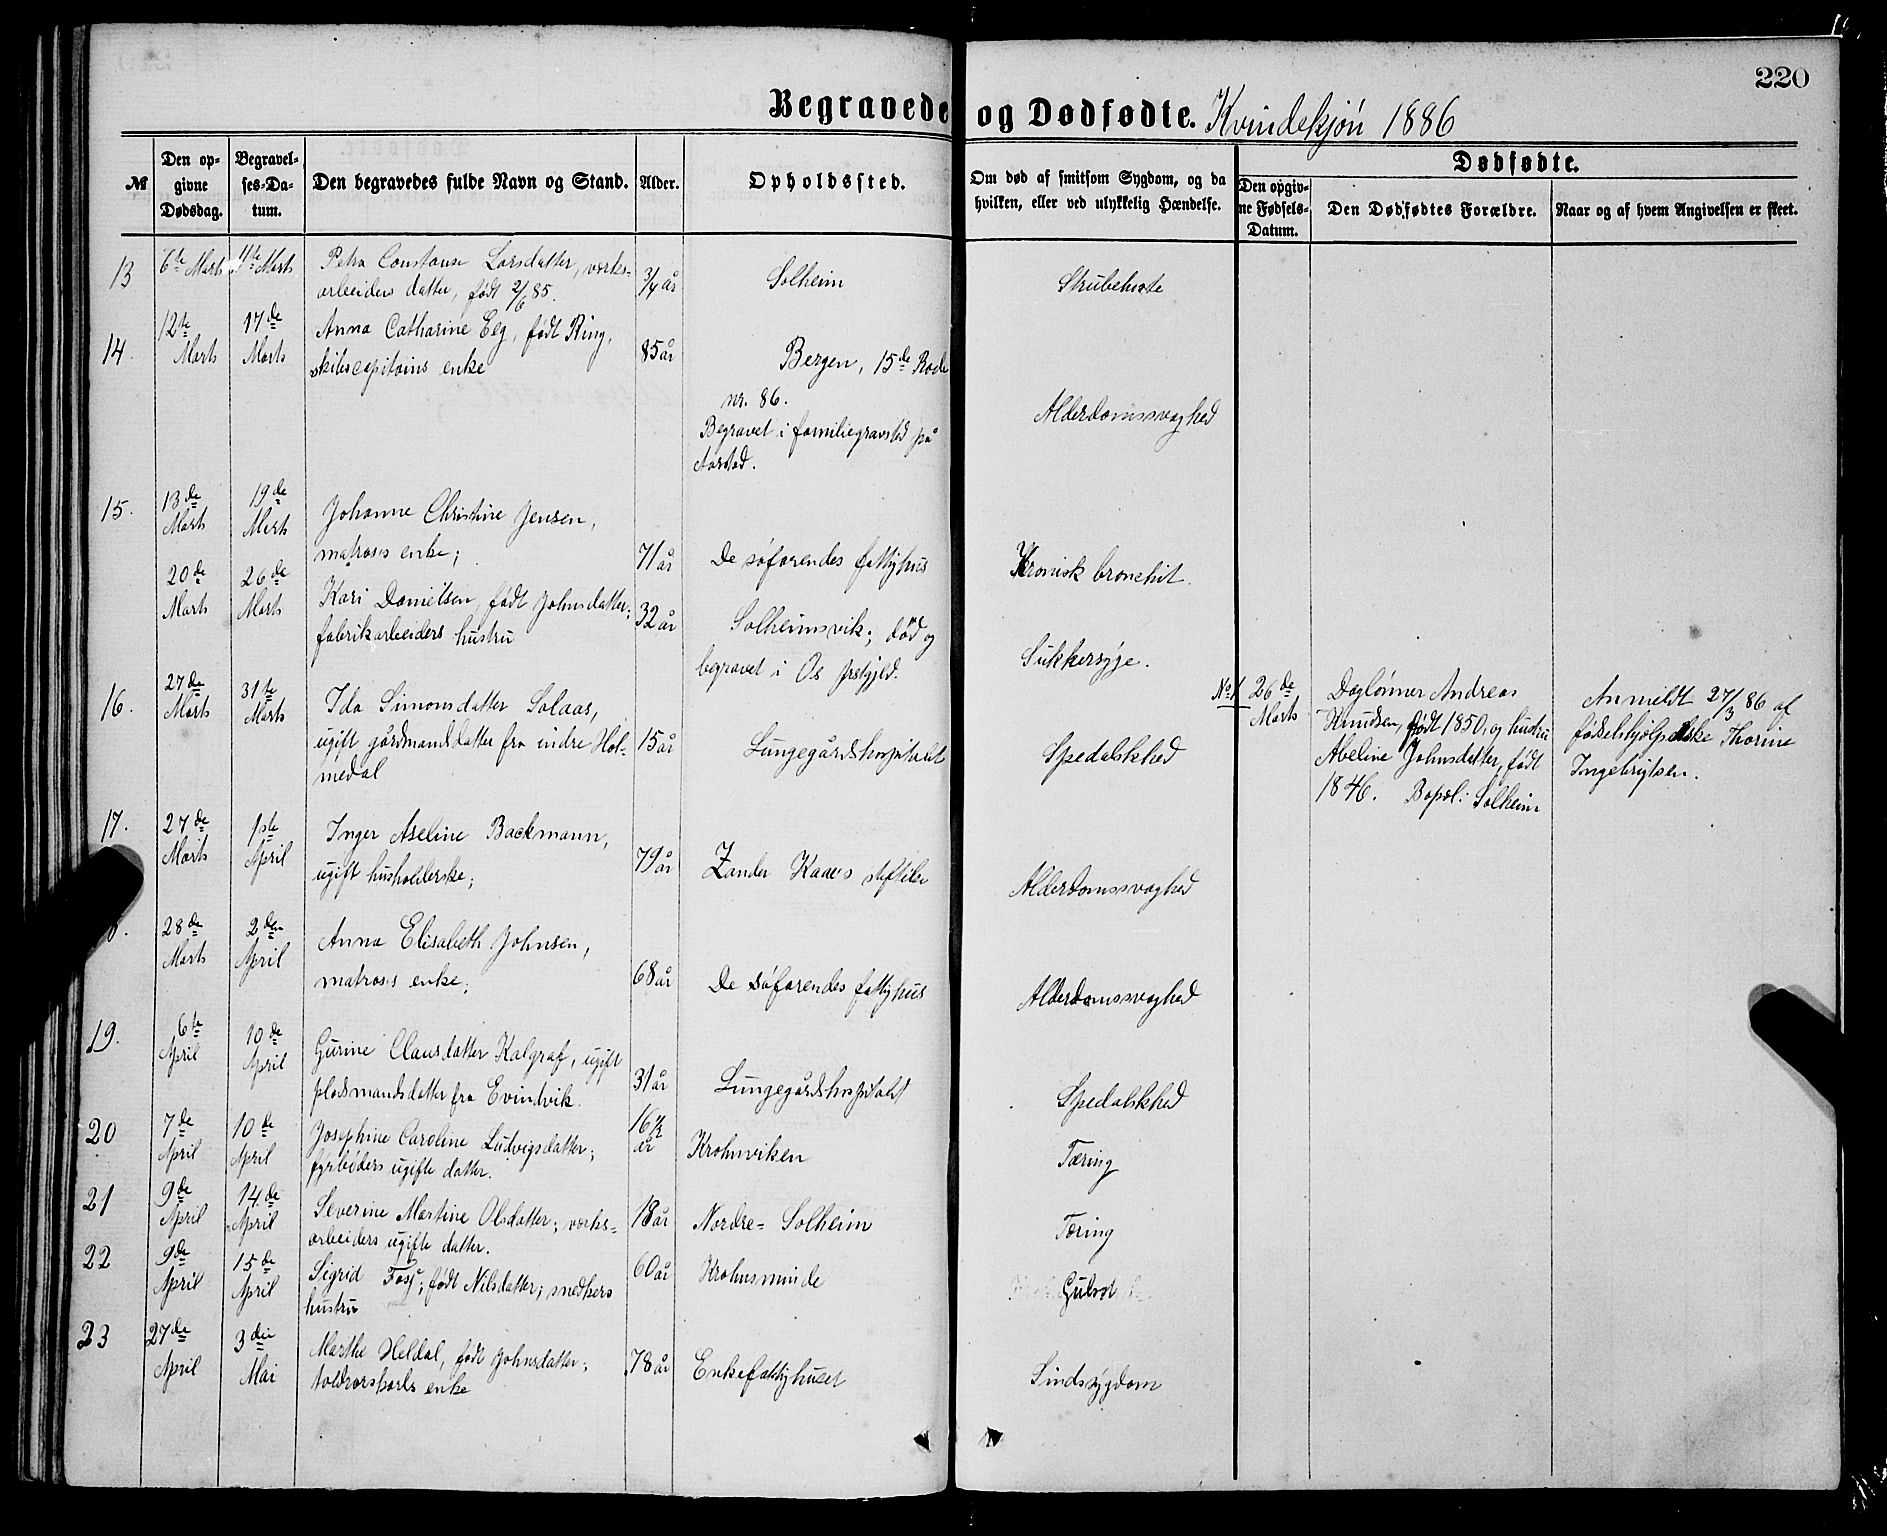 220
Begravede og Dødfødte. Kvindekjön 1886
№
Den opgivne Dødsdag.
Begravelses-Datum.
Den begravedes fulde Navn og Stand.
Alder.
Opholdssted.
Om død af smitsom Sygdom, og da hvilken, eller ved ulykkelig Hændelse.
Dødfødte.
Den opgivne Fødsels-Datum.
Den Dødfødtes Forældre.
Naar og af hvem Angivelsen er skeet.
13 6te Marts 11te Marts Petra Constanse Larsdatter, værks-
arbeiders datter, født 2/6 85. 3/4 år Solheim Strubehoste
14. 12te Marts 17de Marts Anna Catharine Eeg, født Ring,
skibscapitains enke 85 år Bergen, 15de Rode
nr. 86.
Begravet i familiegravsted på
Aarstad.
Alderdomssvaghed
15. 13de Marts 19de Marts Johanne Christine Jensen,
matros's enke; 71 år De søfarendes fattighus Kronisk bronchit.
20de Marts 26de Marts Kari Danielsen, født Johnsdatter;
fabrikarbeiders hustru 32 år Solheimsvik; død og
begravet i Os prstgjeld. Sukkersyge.
16. 27de Marts 31te Marts Ida Simonsdatter Solaas,
ugift gårdmandsdatter fra indre Hol-
medal 15 år Lungegårdshospitalet Spedalskhed
No 1 26de Marts
Daglønner Andreas
Knudsen, født 1850, og hustru
Abeline Johnsdatter, født
1846. Bopæl: Solheim
Anmeldt 27/3 86 af
fødselshjælperske Thorine
Ingebrigtsen.
17. 27de Marts 1ste April Inger Aseline Backmann,
ugift husholderske; 79 år Zander Kaaes stiftelse Alderdomssvaghed
8. 28de Marts 2den April Anna Elisabeth Johnsen,
matros's enke; 68 år De søfarendes fattighus Alderdomssvaghed
19. 6te April 10de April Gurine Clausdatter Kalgraf, ugift
pladsmandsdatter fra Evindvik. 31 år Lungegårdshospitalet Spedalskhed
20 7de April 10de April Josephine Caroline Ludvigsdatter;
fyrbøders ugifte datter. 16 1/2 år Krohnviken Tæring
21 9de April 14de April Severine Martine Olsdatter; værks-
arbeiders ugifte datter. 18 år Nordre- Solheim Tæring
22 9de April 15de April Sigrid født Nilsdatter; snedkers
hustru 60 år Krohnsminde Gulsot
23 27de April 3die Mai Marthe Heldal, født Johnsdatter;
toldvorskarls enke 78 år Enkefattighuset Sindssygdom